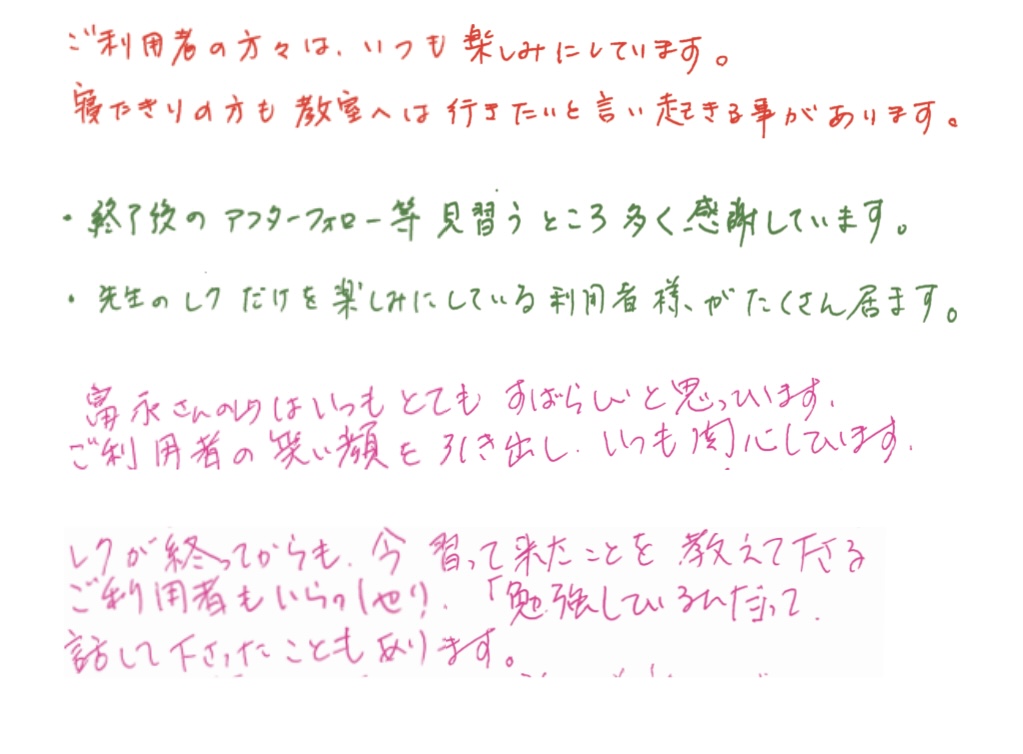 ご利用者の方々は、いつも楽しみにしています。
寝たきりの方も教室へは行きたいと言い起きる事があります。
・終了後のアフターフォロー等見習うところ多く感謝しています。
・先生のレクだけを楽しみにしている利用者様、がたくさん居ます。
富永さんのレクはいつもとてもすばらしいと思っています。
ご利用者の笑い顔を引き出し、いつも関心しています。
レクが終ってからも、今習って来たことを教えて下さる
ご利用者もいらっしゃり、「勉強しているんだって、
話して下さったこともあります。